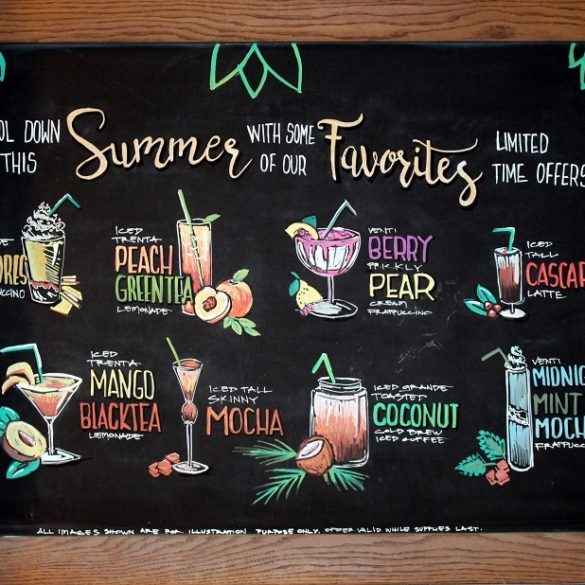 OL DOWN
THIS
Summer
WITH SOME
OF OUR
Favorites
LIMITED
TIME OFFERS
ICED
TRENTA
PEACH
GREEN TEA
LEMONADE
VENTI
BERRY
PRICKLY
PEAR
CREAM
FRAPPUCCINO
ICED
TALL
CASCAR
LATTE
ICED
TRENTA
MANGO
BLACKTEA
LEMONADE
ICED TALL
SKINNY
MOCHA
ICED GRANDE
TOASTED
COCONUT
COLD BREW
ICED COFFEE
VENTI
MIDNIG
MINT
MOCH
FRAPPUCC
ALL IMAGES SHOWN ARE FOR ILLUSTRATION PURPOSE ONLY. OFFER VALID WHILE SUPPLIES LAST.